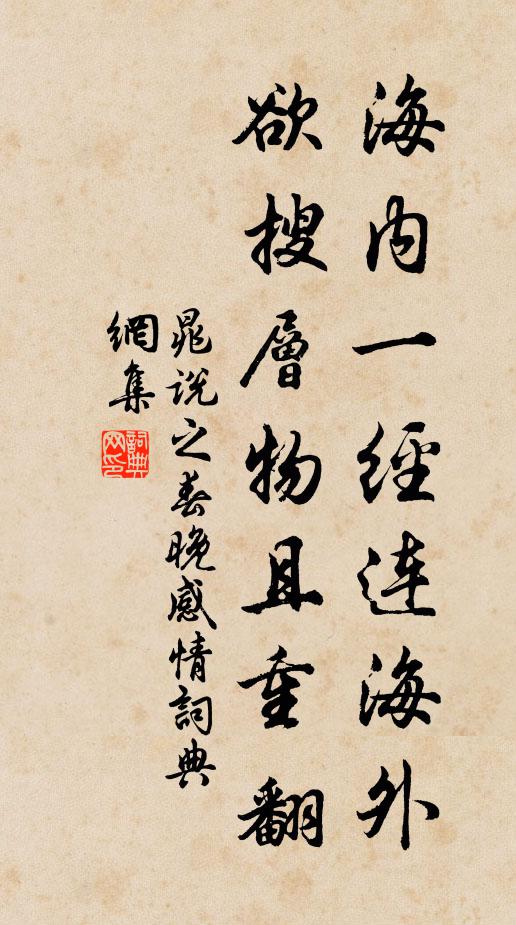 海内一經連海外
欲搜層物且重翻
晁說之春晚感情詞典
網集
詞典
网印